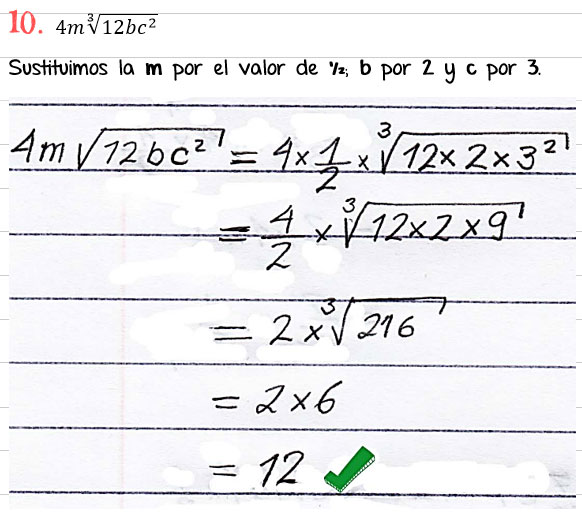 10. 4m∛12bc²
Sustituimos la m por el valor de ½; b por 2 y c por 3.
4m √12bc² = 4 × 1/2 × ∛12 × 2 × 3²
= 4/2 × ∛12 × 2 × 9
= 2 × ∛216
= 2 × 6
= 12